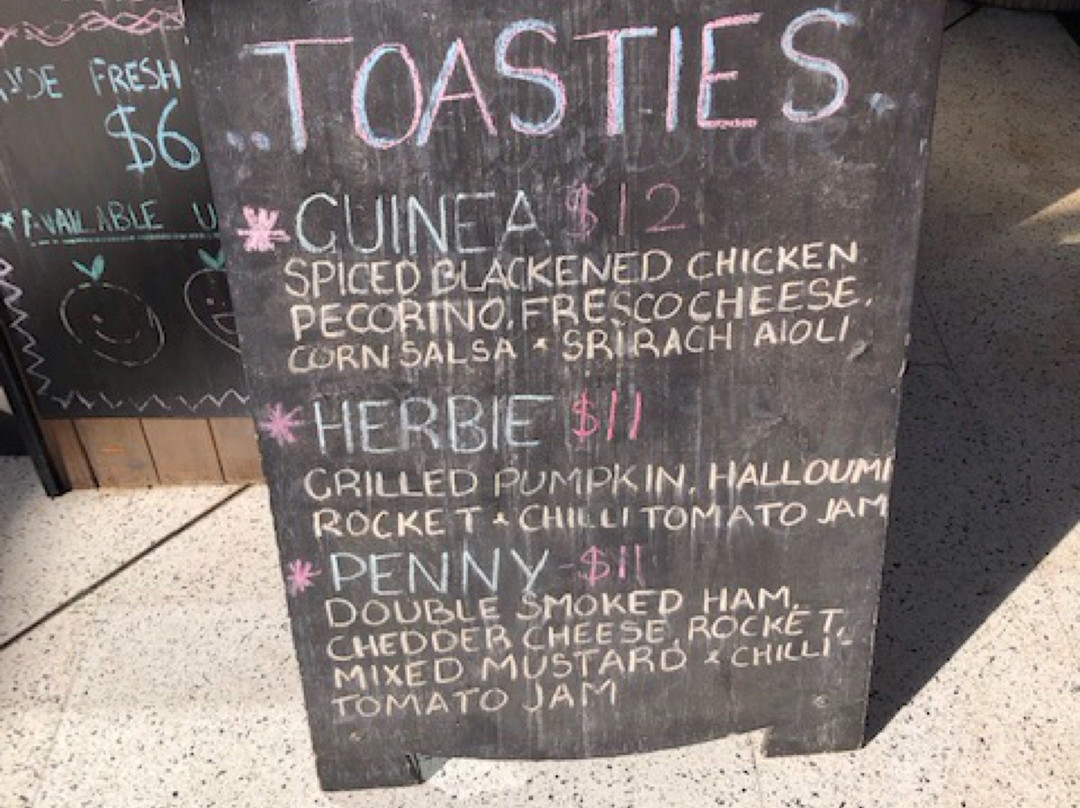 FRESH
$6
*AVAILABLE U
..TOASTIES.
* GUINEA $12
SPICED BLACKENED CHICKEN
PECORINO, FRESCO CHEESE,
CORN SALSA & SRIRACH AIOLI
* HERBIE $11
GRILLED PUMPKIN, HALLOUMI
ROCKET & CHILLI TOMATO JAM
* PENNY - $11
DOUBLE SMOKED HAM,
CHEDDER CHEESE, ROCKET,
MIXED MUSTARD & CHILLI-
TOMATO JAM